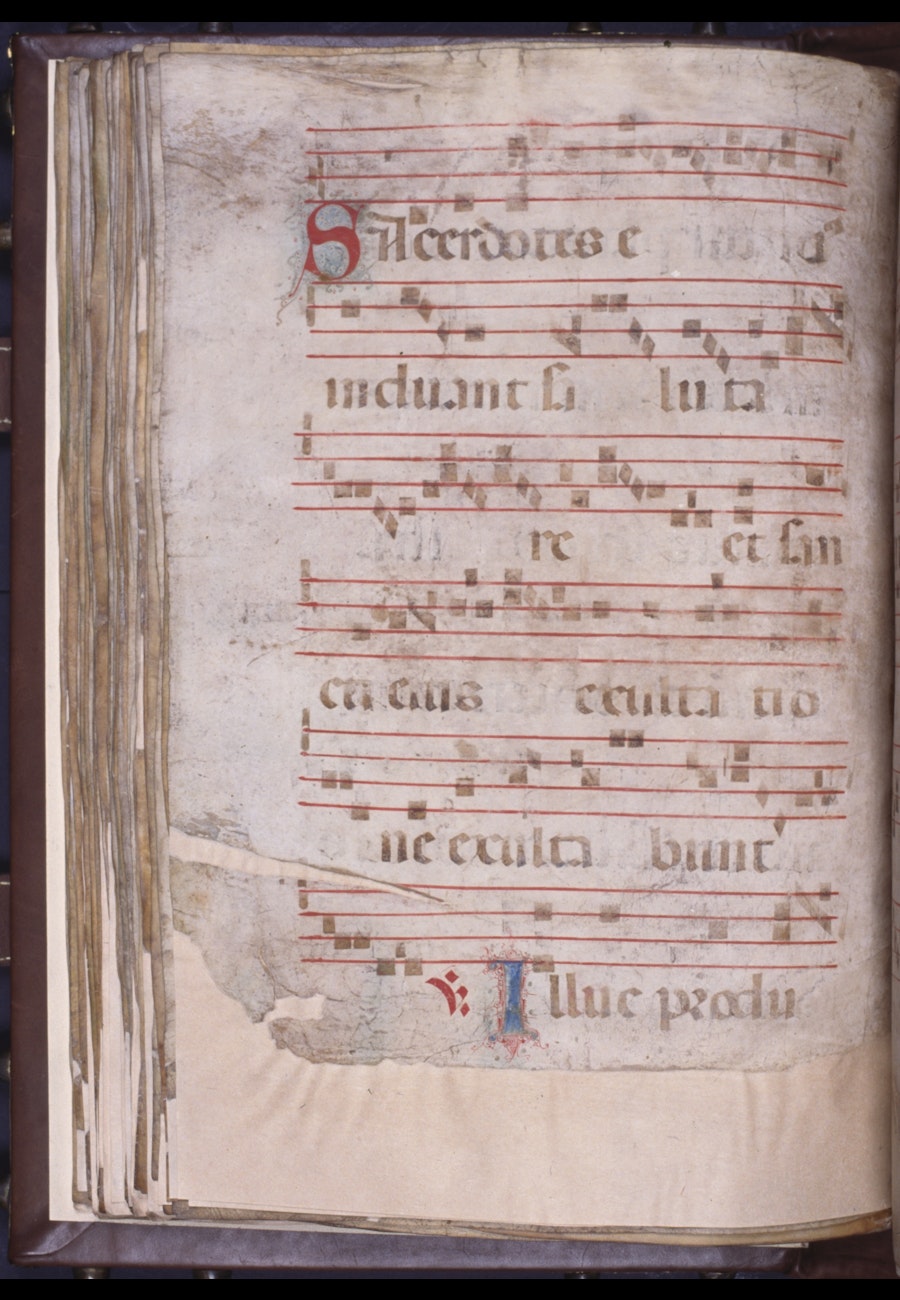 SAcerdotes e
induant sa lu ta
re et san
cti eius exulta tio
ne exulta bunt
℣. Illuc produ